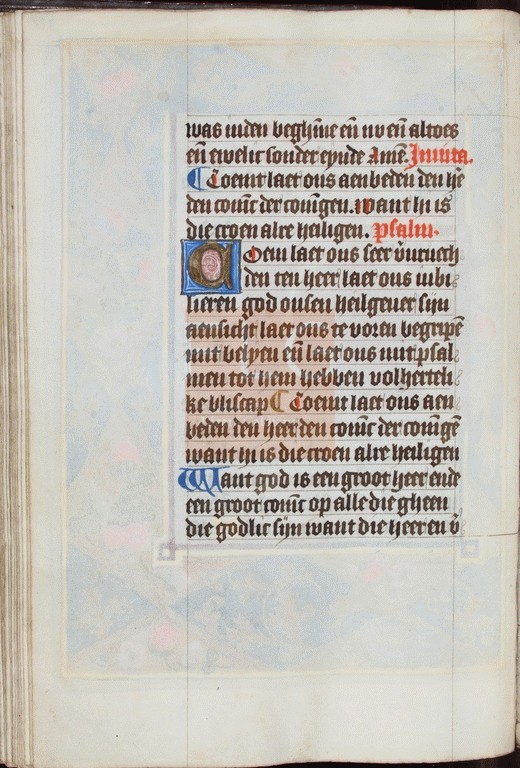 was inden beghīne eñ nv eñ altoes
eñ ewelic sonder eynde Amē. Invita.
Coemt laet ons aenbeden den hē
den coninc der coningen. want hi is
die croen alre heiligen. psalm.
Coemt laet ons seer v̄uruech
den den heer laet ons iubi
lieren god onsen heilgeuer sijn
aensicht laet ons te voren begripē
mit belyen eñ laet ons mit psal
men tot hem hebben volherteli
ke bliscap Coemt laet ons aen
beden den heer den coninc der coningē
want hi is die croen alre heiligen
Want god is een groot heer ende
een groot coninc op alle die gheen
die godlic sijn want die heer en v̄